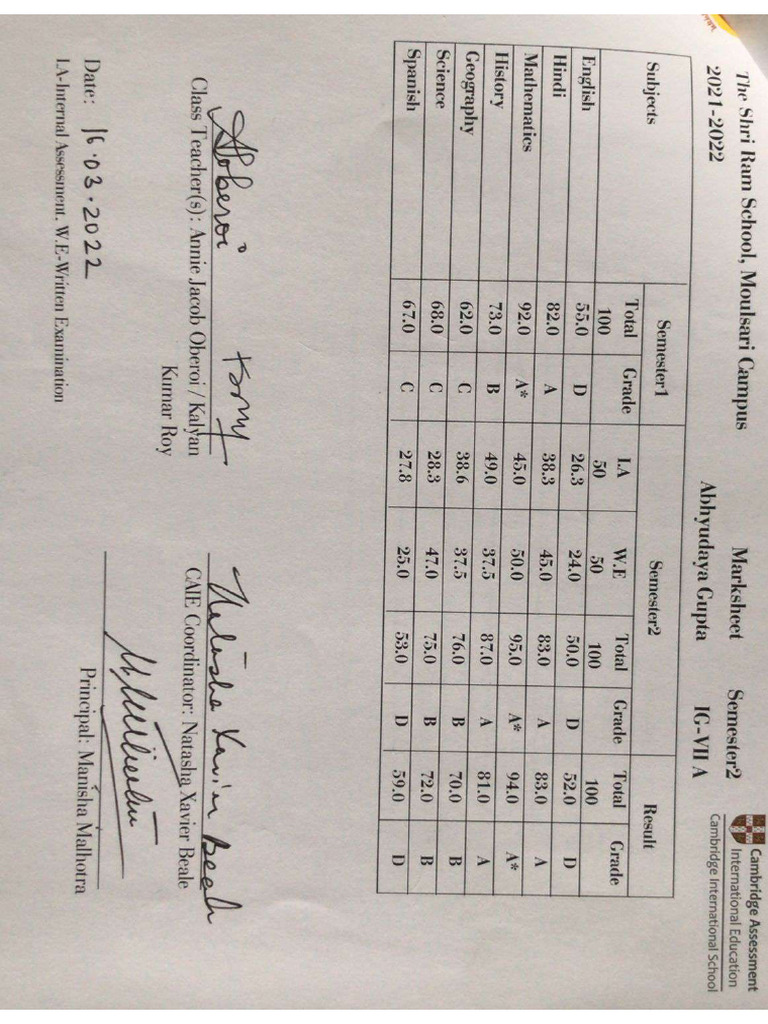 The Shri Ram School, Moulsari Campus Marksheet Semester2
2021-2022 Abhyudaya Gupta IG-VII A
Cambridge Assessment
International Education
Cambridge International School
Subjects Semester1 Semester2 Result
Total Grade I.A W.E Total Grade Total Grade
100 50 50 100 100
English 55.0 D 26.3 24.0 50.0 D 52.0 D
Hindi 82.0 A 38.3 45.0 83.0 A 83.0 A
Mathematics 92.0 A* 45.0 50.0 95.0 A* 94.0 A*
History 73.0 B 49.0 37.5 87.0 A 81.0 A
Geography 62.0 C 38.6 37.5 76.0 B 70.0 B
Science 68.0 C 28.3 47.0 75.0 B 72.0 B
Spanish 67.0 C 27.8 25.0 53.0 D 59.0 D
AOberoi KRoy Natasha Xavier Beale
Class Teacher(s): Annie Jacob Oberoi / Kalyan
Kumar Roy
CAIE Coordinator: Natasha Xavier Beale
Date: 16.03.2022
Principal: Manisha Malhotra
I.A-Internal Assessment. W.E-Written Examination